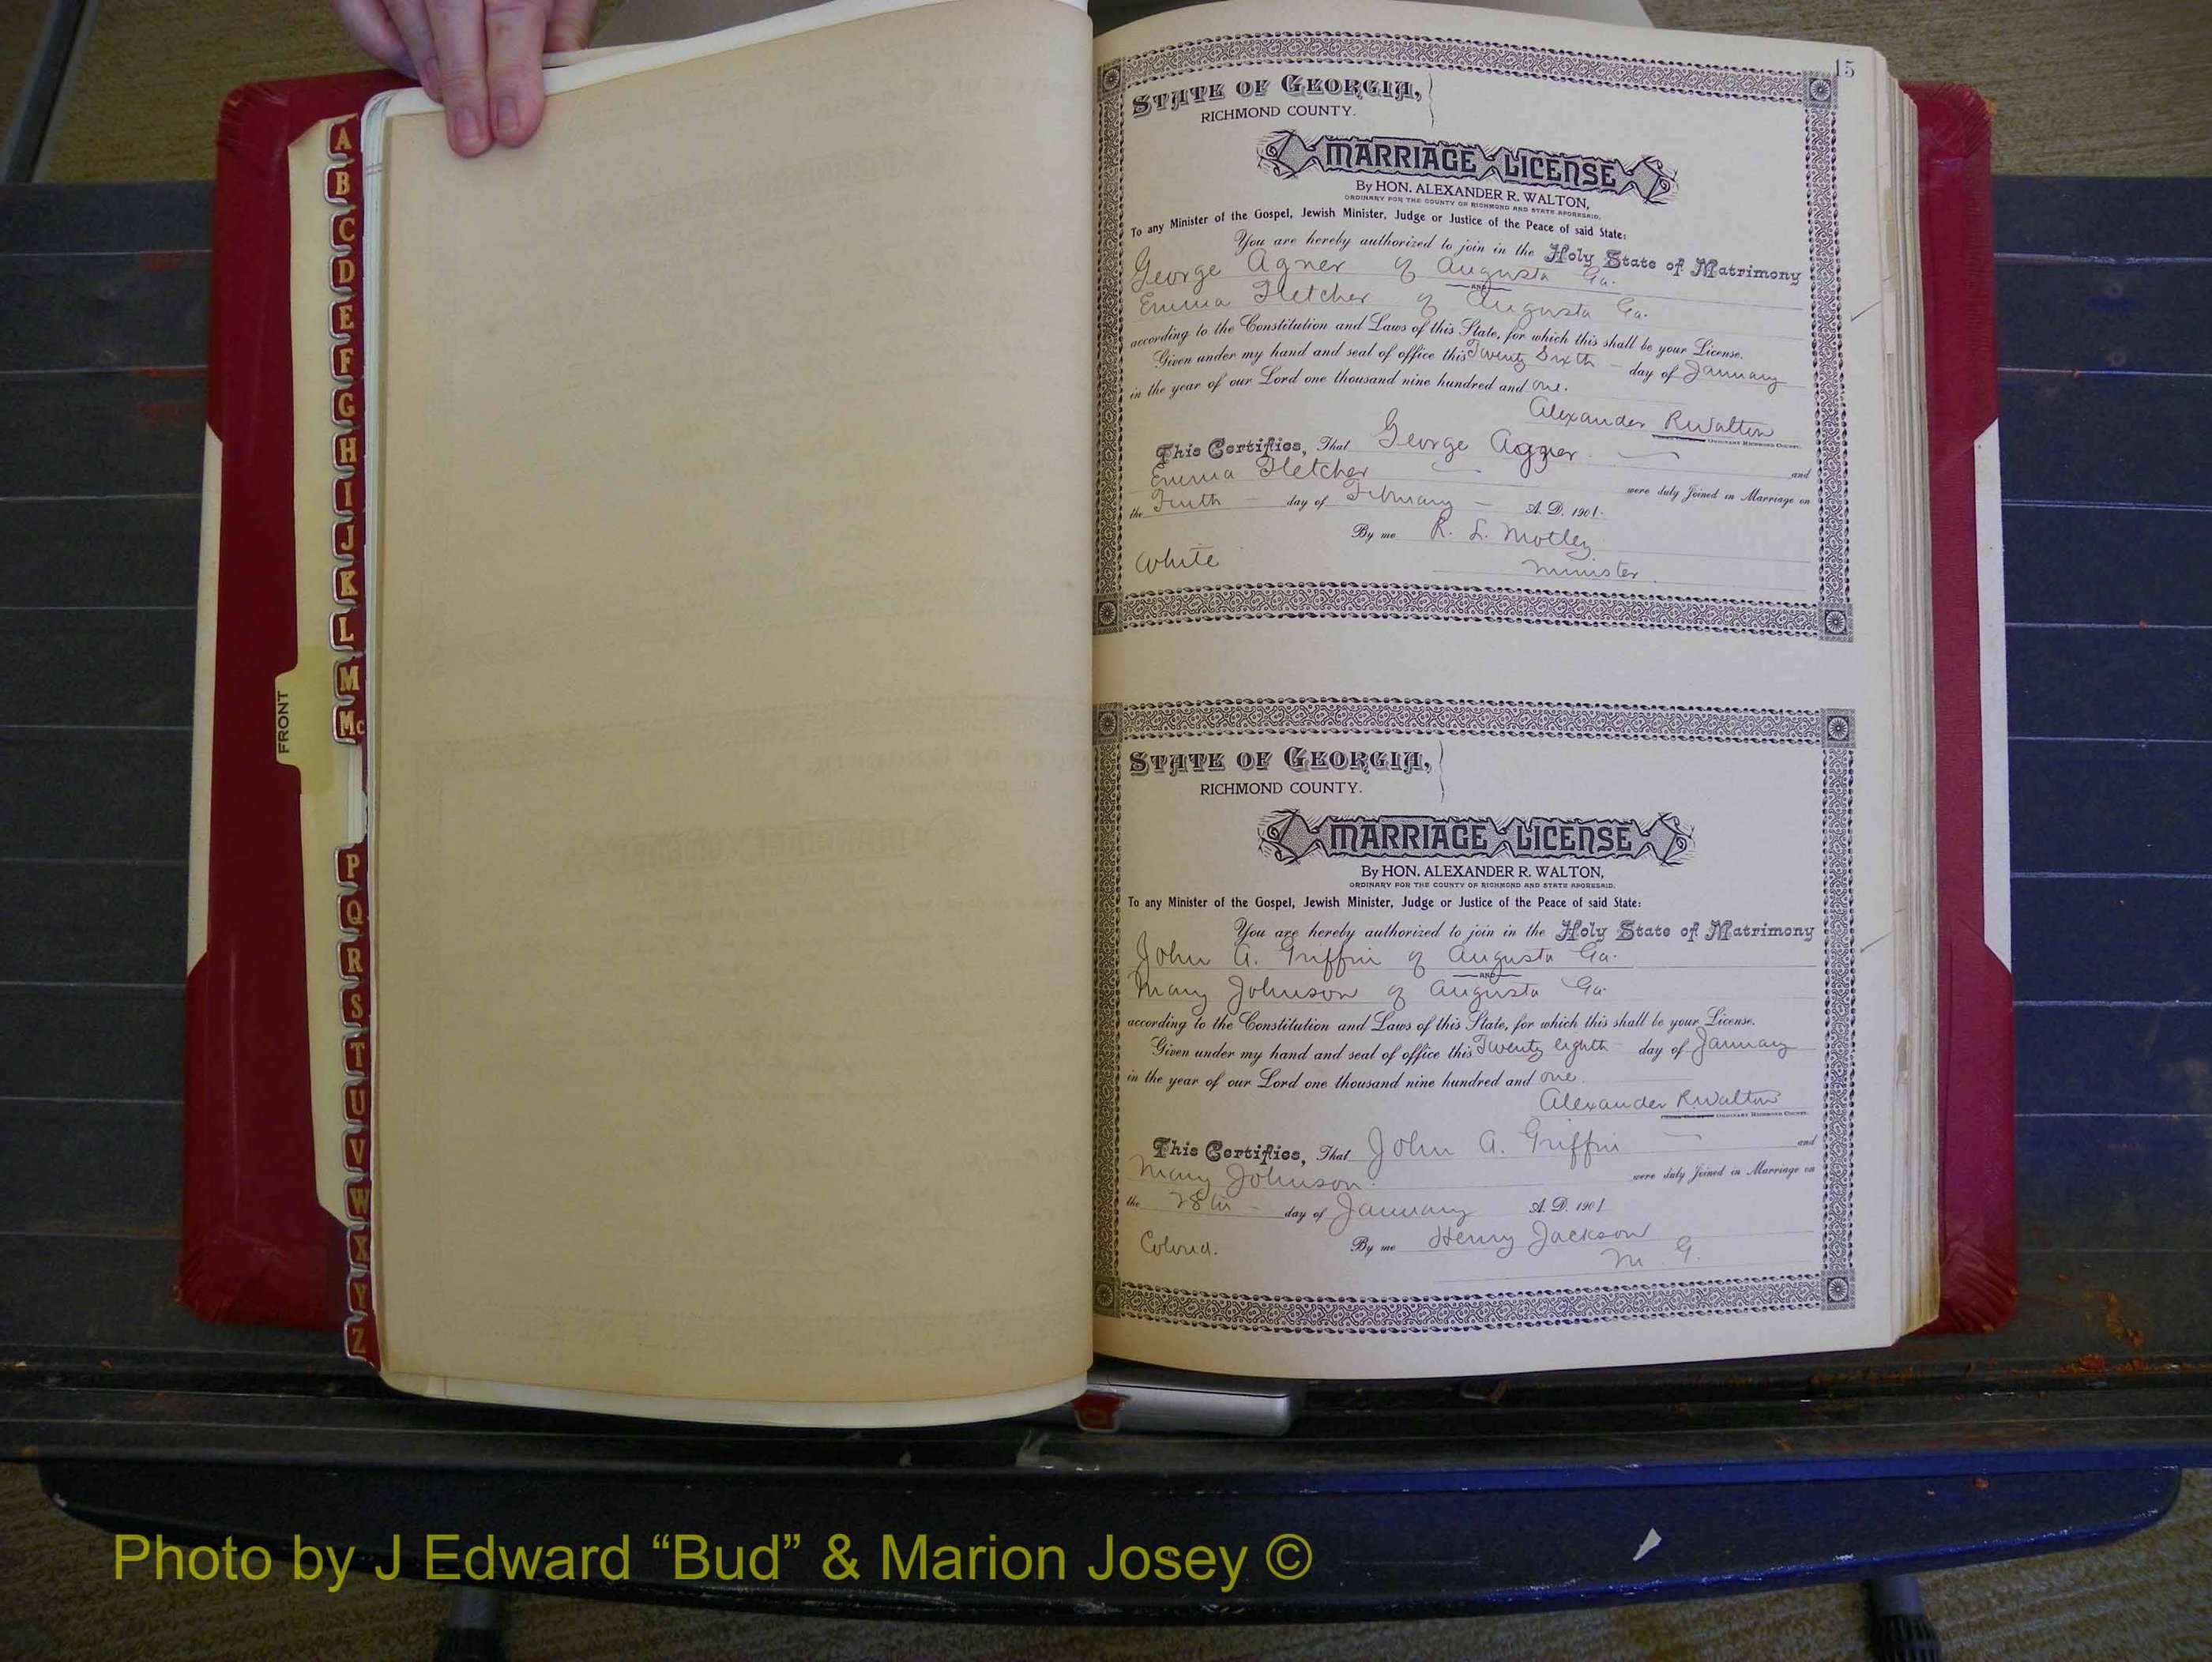 15
STATE OF GEORGIA,
RICHMOND COUNTY.
MARRIAGE LICENSE
By HON. ALEXANDER R. WALTON,
ORDINARY FOR THE COUNTY OF RICHMOND AND STATE AFORESAID.
To any Minister of the Gospel, Jewish Minister, Judge or Justice of the Peace of said State:
You are hereby authorized to join in the Holy State of Matrimony
George Agner of Augusta Ga.
AND
Emma Fletcher of Augusta Ga.
according to the Constitution and Laws of this State, for which this shall be your License.
Given under my hand and seal of office this Twenty Sixth day of January
in the year of our Lord one thousand nine hundred and One.
Alexander R Walton
ORDINARY RICHMOND COUNTY.
This Certifies, That George Agner and
Emma Fletcher were duly Joined in Marriage on
the Tenth day of February A. D. 1901.
By me R. L. Motley
White Minister.
STATE OF GEORGIA,
RICHMOND COUNTY.
MARRIAGE LICENSE
By HON. ALEXANDER R. WALTON,
ORDINARY FOR THE COUNTY OF RICHMOND AND STATE AFORESAID.
To any Minister of the Gospel, Jewish Minister, Judge or Justice of the Peace of said State:
You are hereby authorized to join in the Holy State of Matrimony
John A. Griffin of Augusta Ga.
AND
Mary Johnson of Augusta Ga
according to the Constitution and Laws of this State, for which this shall be your License.
Given under my hand and seal of office this Twenty eighth day of January
in the year of our Lord one thousand nine hundred and one.
Alexander R Walton
ORDINARY RICHMOND COUNTY.
This Certifies, That John A. Griffin and
Mary Johnson. were duly Joined in Marriage on
the 28th day of January A. D. 1901
Colored. By me Henry Jackson
M. G.
A
B
C
D
E
F
G
H
I
J
K
L
M
Mc
P
Q
R
S
T
U
V
W
X
Y
Z
FRONT
O
Photo by J Edward “Bud” & Marion Josey ©